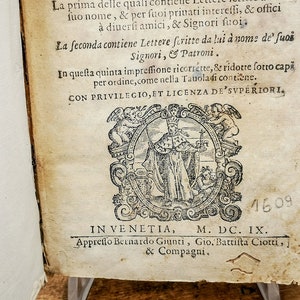 La prima delle quali contiene Lettere
suo nome, & per suoi privati interessi, & offici
à diversi amici, & Signori suoi.
La seconda contiene Lettere scritte da lui à nome de' suoi
Signori, & Patroni.
In questa quinta impressione ricorrette, & ridotte sotto capi
per ordine, come nella Tauola si contiene.
CON PRIVILEGIO, ET LICENZA DE' SVPERIORI.
1609
IN VENETIA, M. DC. IX.
Appresso Bernardo Giunti, Gio. Battista Ciotti,
& Compagni.